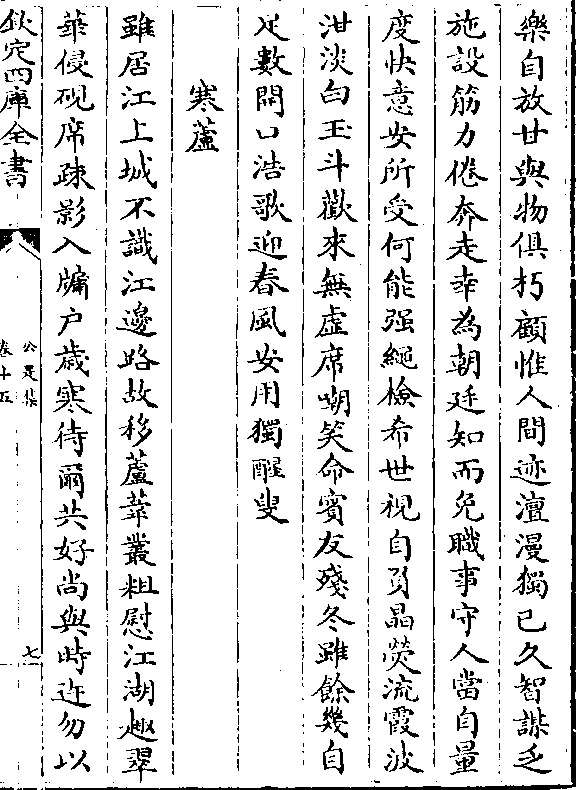 樂自放甘與物俱朽顧惟人間迹澶漫獨已久智謀乏
施設筋力倦奔走幸為朝廷知而免職事守人當自量
度快意安所受何能强繩檢希世視自負晶熒流霞波
泔淡白玉斗歡來無虛席嘲笑命賓友殘冬雖餘幾自
足數開口浩歌迎春風安用獨醒叟
寒蘆
雖居江上城不識江邊路故移蘆葦叢粗慰江湖趣翠
葉侵硯席疎影入牖户歲寒待爾共好尚與時迕勿以
欽定四庫全書
公是集
卷十五
七